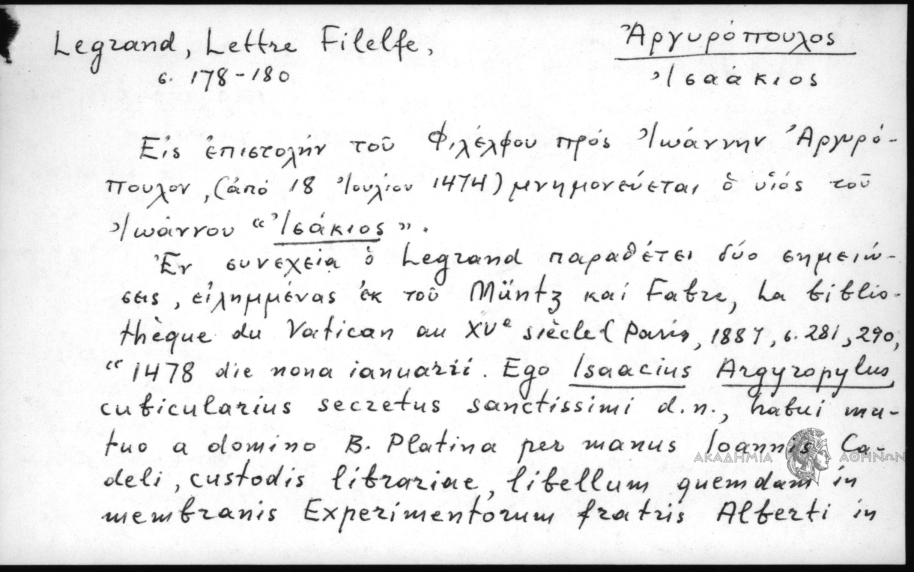 Legrand, Lettre Filelfe,
σ. 178-180
Ἀργυρόπουλος
Ἰσαάκιος
Εἰς ἐπιστολήν τοῦ Φιλέλφου πρός Ἰωάννην Ἀργυρό-
πουλον, (ἀπό 18 Ἰουλίου 1474) μνημονεύεται ὁ υἱός τοῦ
Ἰωάννου "Ἰσάκιος".
Ἐν συνεχείᾳ ὁ Legrand παραθέτει δύο σημειώ-
σεις, εἰλημμένας ἐκ τοῦ Müntz καί Fabre, La biblio-
thèque du Vatican au XVe siècle (Paris, 1887, σ. 281, 290,
"1478 die nona ianuarii. Ego Isaacius Argyropylus,
cubicularius secretus sanctissimi d.n., habui mu-
tuo a domino B. Platina per manus Ioannis Ca-
deli, custodis librariae, libellum quemdam in
membranis Experimentorum fratris Alberti in
ΑΚΑΔΗΜΙΑ ΑΘΗΝΩΝ